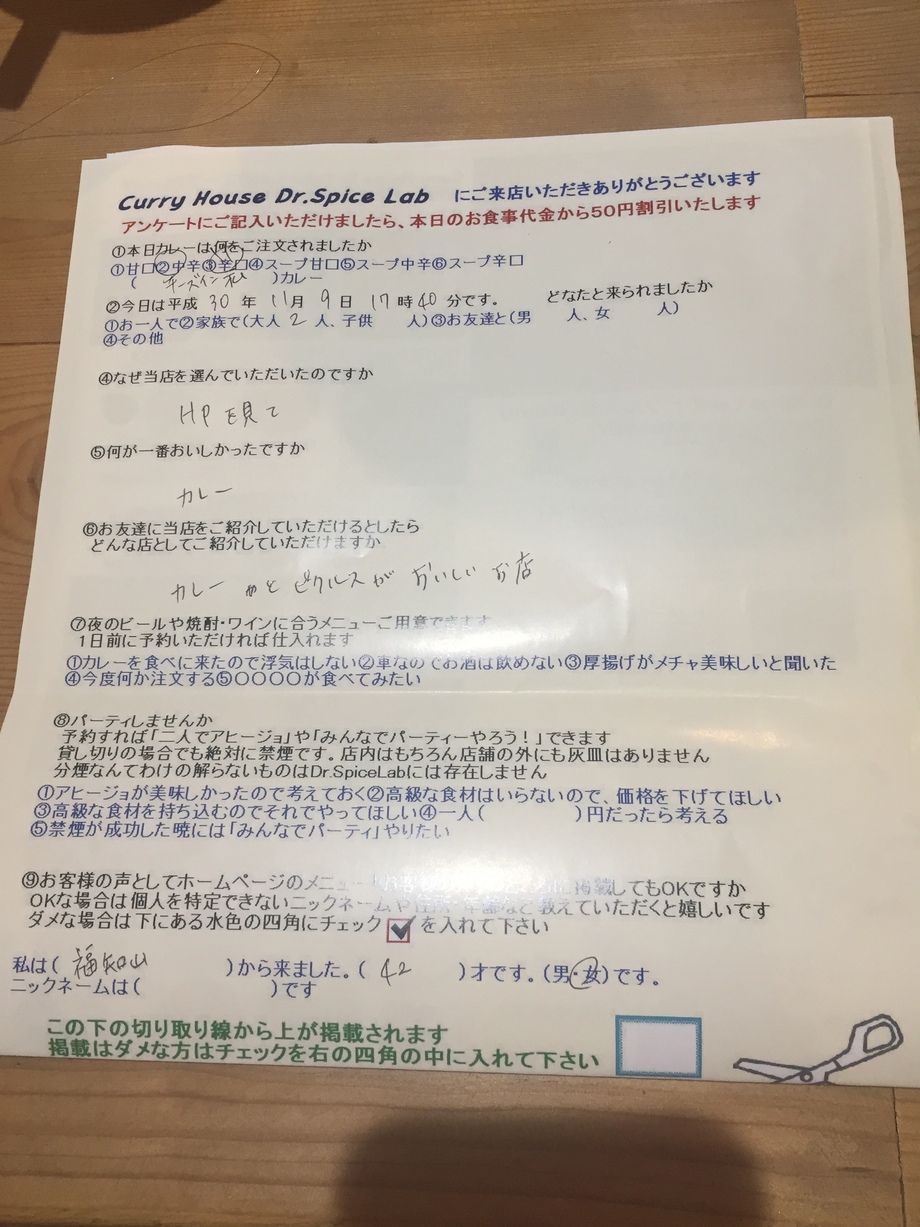 Curry House Dr.Spice Lab にご来店いただきありがとうございます
アンケートにご記入いただけましたら、本日のお食事代金から50円割引いたします
①本日カレーは何をご注文されましたか
①甘口②中辛③辛口④スープ甘口⑤スープ中辛⑥スープ辛口
( チーズイン )カレー
②今日は平成 30 年 11月 9 日 17 時 40 分です。 どなたと来られましたか
①お一人で②家族で(大人 2 人、子供 人)③お友達と(男 人、女 人)
④その他
④なぜ当店を選んでいただいたのですか
HPを見て
⑤何が一番おいしかったですか
カレー
⑥お友達に当店をご紹介していただけるとしたら
どんな店としてご紹介していただけますか
カレー とピクルスが おいしい お店
⑦夜のビールや焼酎・ワインに合うメニューご用意できます
1日前に予約いただければ仕入れます
①カレーを食べに来たので浮気はしない②車なのでお酒は飲めない③厚揚げがメチャ美味しいと聞いた
④今度何か注文する⑤〇〇〇〇が食べてみたい
⑧パーティしませんか
予約すれば「二人でアヒージョ」や「みんなでパーティーやろう！」できます
貸し切りの場合でも絶対に禁煙です。店内はもちろん店舗の外にも灰皿はありません
分煙なんてわけの解らないものはDr.SpiceLabには存在しません
①アヒージョが美味しかったので考えておく②高級な食材はいらないので、価格を下げてほしい
③高級な食材を持ち込むのでそれでやってほしい④一人( )円だったら考える
⑤禁煙が成功した暁には「みんなでパーティ」やりたい
⑨お客様の声としてホームページのメニュー 掲載してもOKですか
OKな場合は個人を特定できないニックネームや住所・年齢など教えていただくと嬉しいです
ダメな場合は下にある水色の四角にチェック を入れて下さい
私は( 福知山 )から来ました。( 42 )才です。(男・女)です。
ニックネームは( )です
この下の切り取り線から上が掲載されます
掲載はダメな方はチェックを右の四角の中に入れて下さい